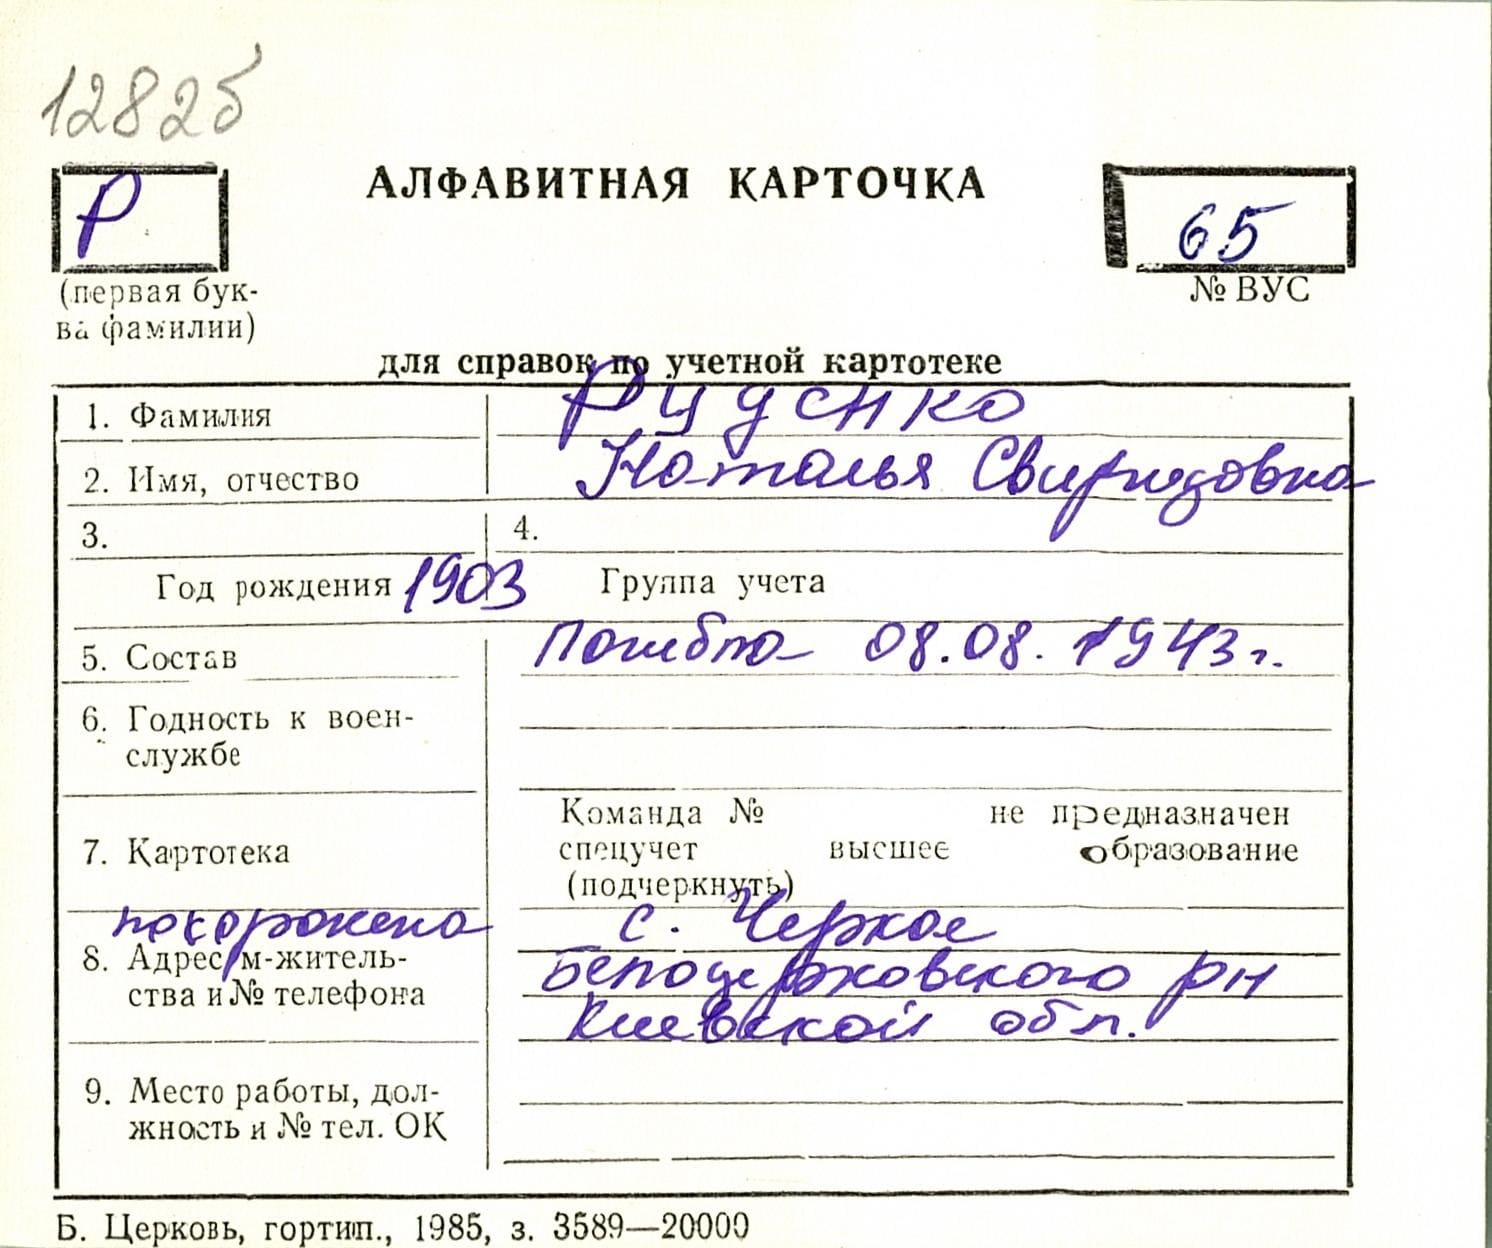 12825
Р
АЛФАВИТНАЯ КАРТОЧКА
65
(первая бук-
ва фамилии)
№ ВУС
для справок по учетной картотеке
1. Фамилия Руденко
2. Имя, отчество Наталья Свиридовна
3. 4.
Год рождения 1903 Группа учета
5. Состав погибла 08.08.1943 г.
6. Годность к воен-
службе
Команда № не предназначен
7. Картотека спецучет высшее образование
(подчеркнуть)
похоронена с. Черкас
8. Адрес м-житель- Белоцерковского рн
ства и № телефона Киевской обл.
9. Место работы, дол-
жность и № тел. ОК
Б. Церковь, гортип., 1985, з. 3589—20000